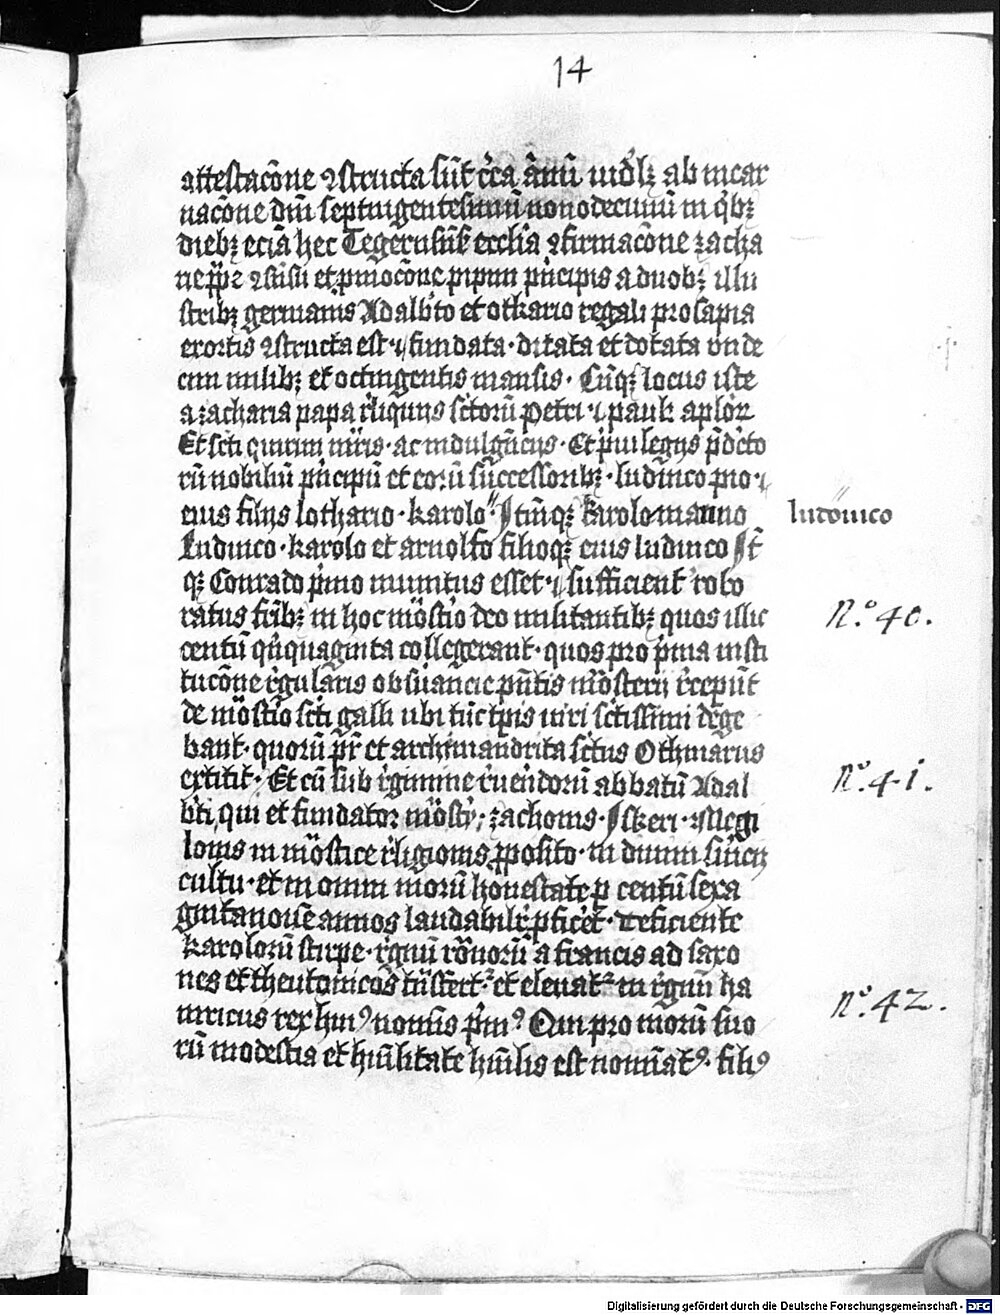 14
attestacōne ꝯstructa sūt c̄ca ānū iubꝫ ab incar
nacōne dn̄i septuigentesimū nonodecimū in qͥbꝫ
diebꝫ eciā hec Tegernsn̄ß eccl̄ia ꝯfirmacōne zacha
rie pp̄e ꝯsēsu et pmocōne pipini pͥncipis a duobꝫ illu
stribꝫ germanis Adalbto et otkario regali prosapia
exortis ꝯstructa est ⁊ fundata · ditata et dotata vnde
cim milibꝫ et octingentis mansis · Cūqꝫ locus iste
a zacharia papa r̄liquijs sctorū Petri ⁊ pauli aplor̄
Et scti quirini mr̄is · ac indulgn̄cijs · Et pͥuilegijs p̄dc̄to
rū nobiliū pͥncipū et eorū successoribꝫ · ludwico pio · ⁊
eius filijs lothario · karolo · Itēqꝫ karolomanno
ludouico
Ludwico · karolo et arnolfo filioqꝫ eius ludwico It̄
qꝫ Conrado pͥmo munitus esset · ⁊ sufficient̄ robo
ratus frībꝫ in hoc mōstͥo deo militantibꝫ quos illic
N.º 40.
centū qͥnquaginta collegerant · quos pro pͥma insti
tucōne r̄gularis obsuancie pn̄tis mōsterij r̄cepūt
de mōstͥo scti galli ubi tūc tp̄is viri sctissimi dege
bant · quorū pr̄ et archimandrita sctus Othmarus
extitit · Et cū sub r̄gimine r̄uendorū abbatū Adal
N.º 41.
bti, qui et fundator mōstͥj · zachonis · Iskeri · Megi
lonis in mōstice r̄ligionis pposito · in diuini suicij
cultu · et in omni morū honestate p centū sexa
gintanouē annos laudabilr̄ pficēt · Deficiente
karolorū stirpe · r̄gnū rōnorū a francis ad saxo
nes et theutonicos tūsfert̄ · et eleuatͬ in r̄gnū ha
inricus rex huiꝰ nomīs pͥmꝰ Qui pro morū suo
N.º 42.
rū modestia et hūilitate hūilis est nomīatꝰ · filiꝰ
Digitalisierung gefördert durch die Deutsche Forschungsgemeinschaft - DFG